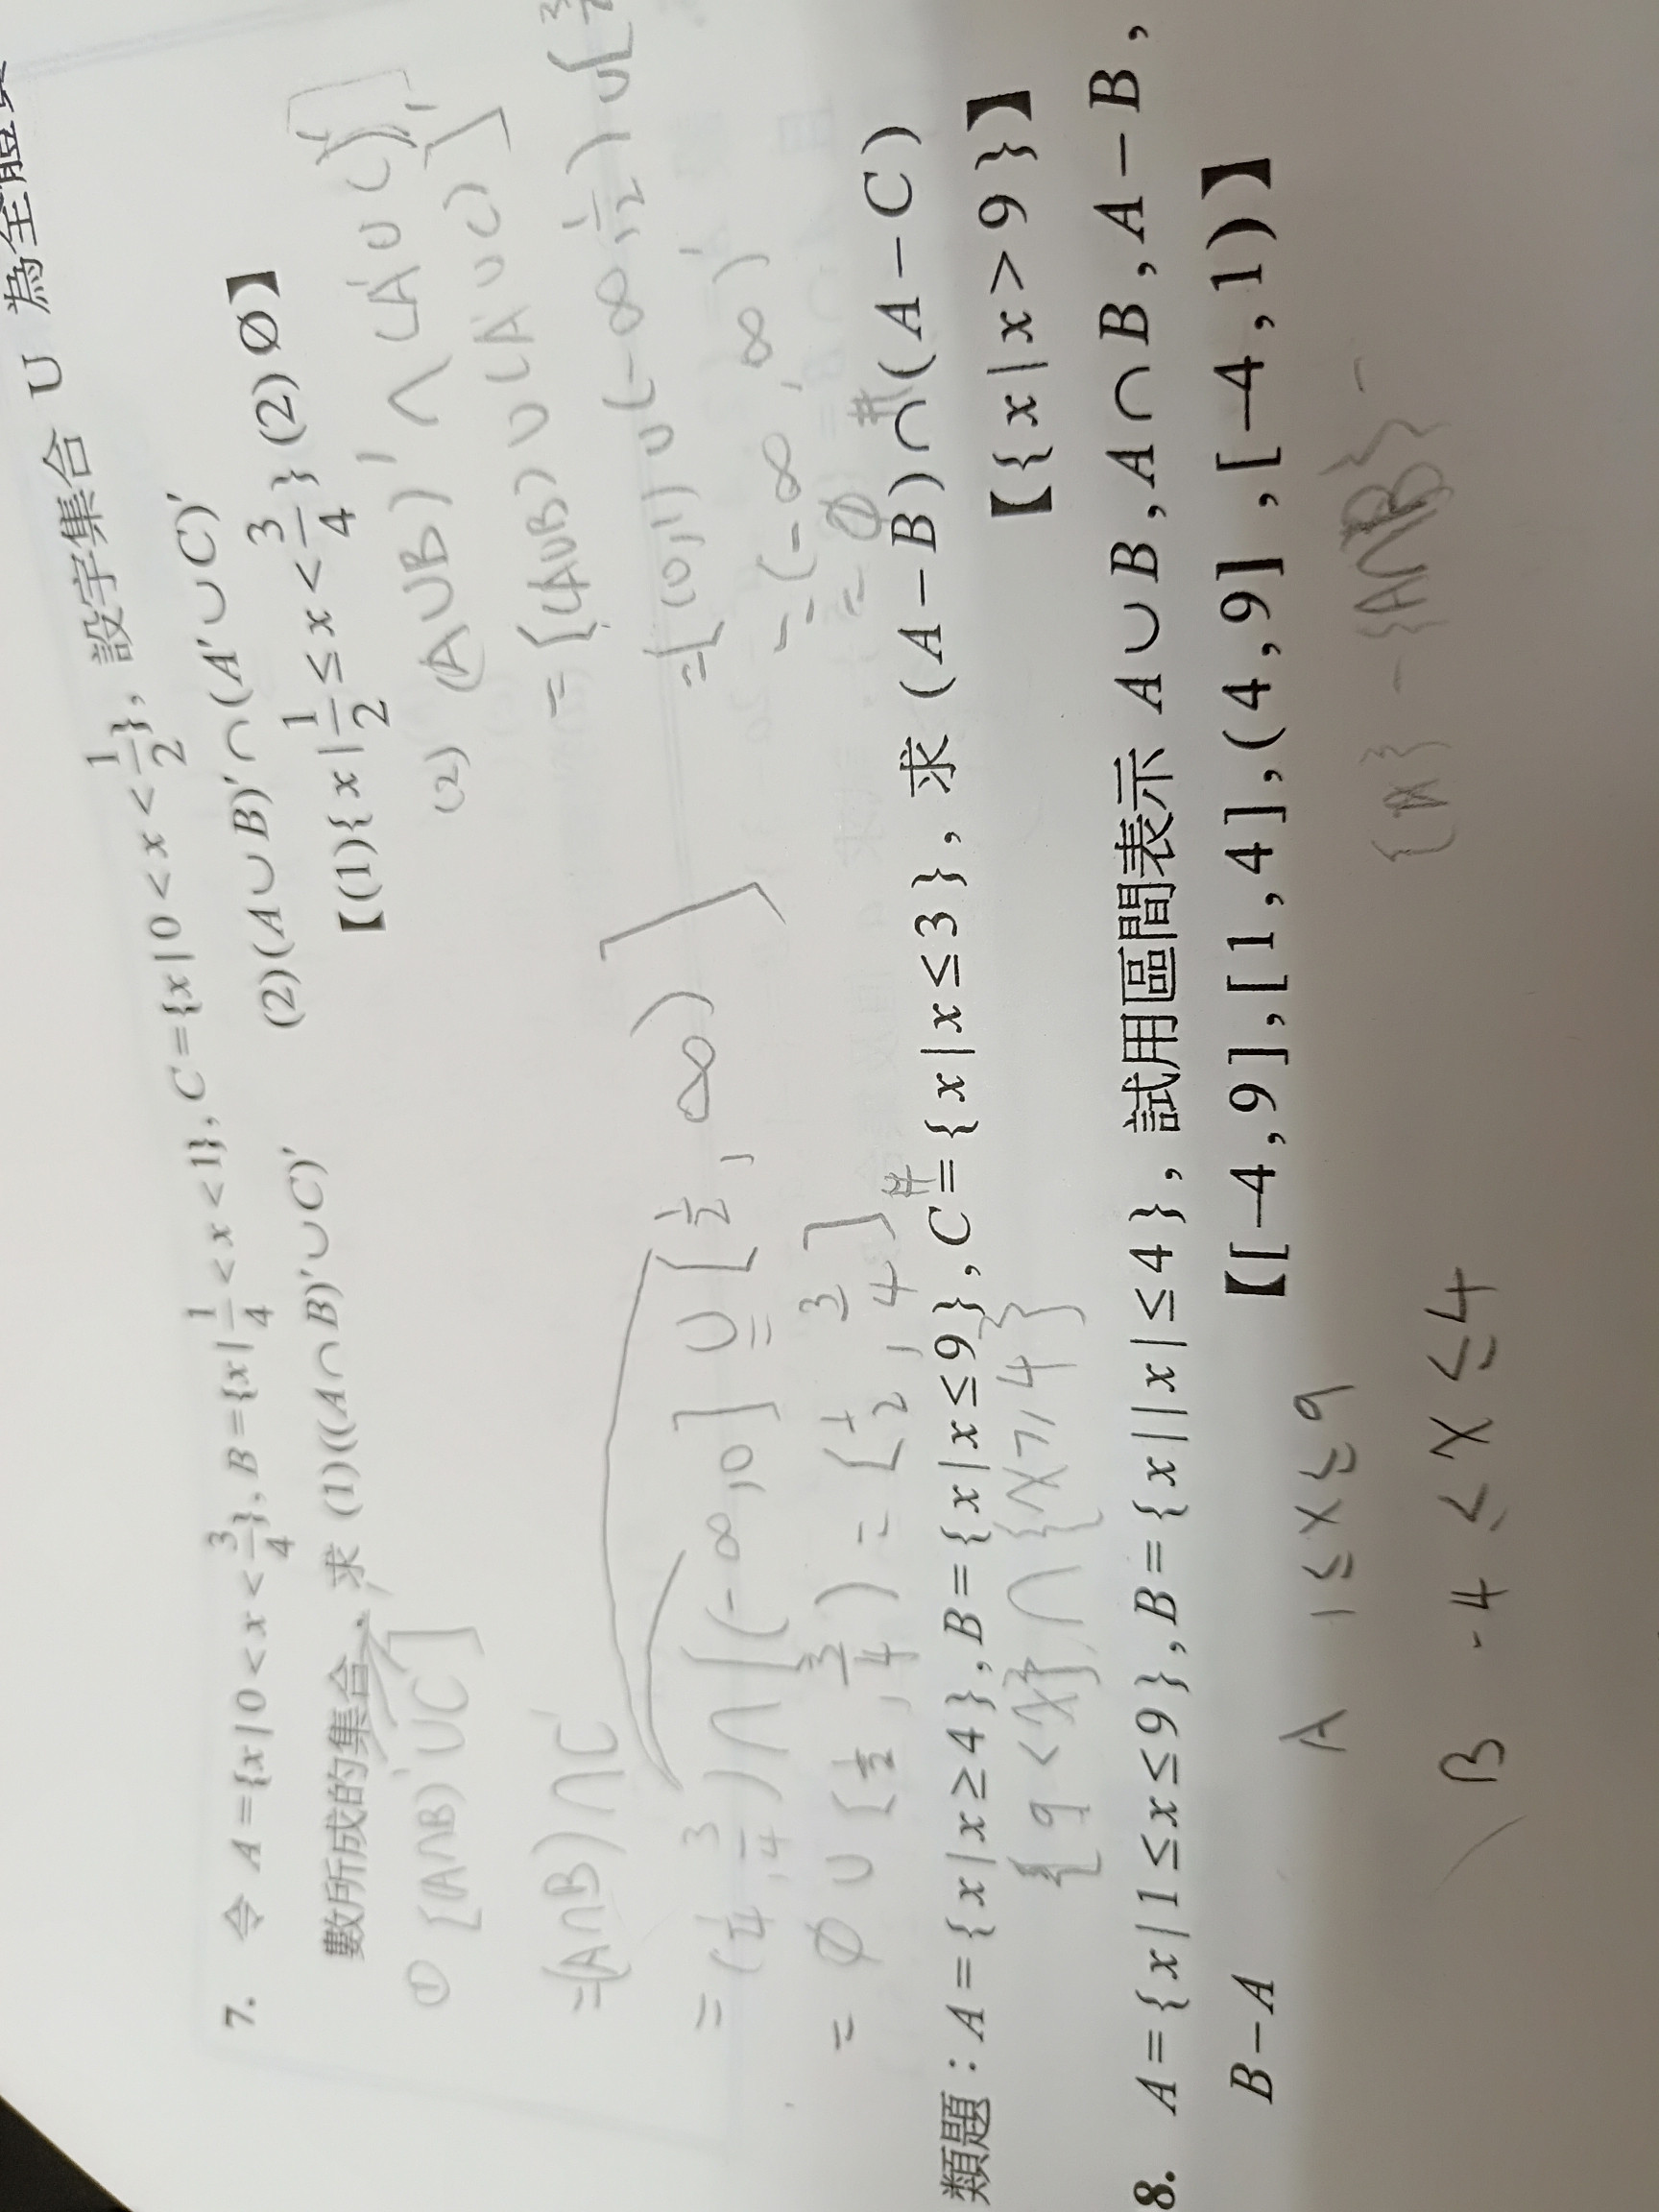 U 為全體
7. 令 A={x|0<x<3/4}, B={x|1/4<x<1}, C={x|0<x<1/2}, 設宇集合
數所成的集合, 求 (1)((A∩B)'∪C)' (2)(A∪B)'∩(A'∪C)'
【(1){x|1/2≤x<3/4}(2)∅】
① [(A∩B)'∪C]'
=(A∩B)∩C'
=(1/4,3/4)∩[(-∞,0]∪[1/2,∞)]
=∅∪[1/2,3/4)=[1/2,3/4] #
(2) (A∪B)'∩(A'∪C)'
=[(A∪B)∪(A'∪C)]'
=[(0,1)∪(-∞,1/2)∪[3/
=(-∞,∞)'
=∅ #
類題:A={x|x≥4},B={x|x≤9},C={x|x≤3}, 求 (A-B)∩(A-C)
【{x|x>9}】
{9<x}∩{x≥4}
8. A={x|1≤x≤9},B={x||x|≤4}, 試用區間表示 A∪B,A∩B,A-B,
B-A 【[-4,9],[1,4],(4,9],[-4,1)】
A 1≤x≤9
B -4≤x≤4
{A}-{A∩B}-